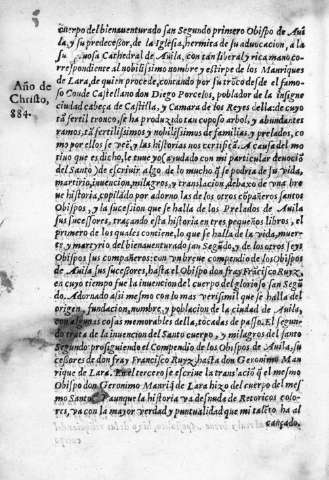 cuerpo del bienauenturado san Segundo primero Obispo de Aui
la, y su predecesor, de la Iglesia, hermita de su aduocacion, a la
su Cathedral de Auila, con tan liberal y rica mano co-
rrespondiente al nobilissimo nombre y estirpe de los Manriques
de Lara, de quien procede, contando por su trõco desde el famo
so Conde Castellano don Diego Porcelos, poblador de la insigne
ciudad cabeça de Castilla, y Camara de los Reyes della: de cuyo
tã fertil tronco, se ha produzido tan coposo arbol, y abundantes
ramos, tã fertilissimos y nobilissimos de familias, y prelados, co
mo por ellos se veè, y las historias nos certificã. A causa del mo
tiuo que es dicho, le tuue yo (ayudado con mi particular deuociõ
del Santo) de escriuir algo de lo mucho q̃ se podria de su vida,
martirio, inuencion, milagros, y translacion, debaxo de vna bre
ue historia, copilado por adornallas de los otros cõpañeros santos
Obispos, y la sucesion que se halla de los Prelados de Auila
sus sucessores, traçando esta historia en tres pequeños libros, el
primero de los quales contiene, lo que se halla de la vida, muer-
te, y martyrio del bienauenturado san Segũdo, y de los otros seys
Obispos sus compañeros: con vn breue compendio de los Obispos
de Auila sus sucesores, hasta el Obispo don fray Frãcisco Ruyz,
en cuyo tiempo fue la inuencion del cuerpo del glorioso san Segũ
do. Adornado assi mesmo con lo mas verisimil que se halla del
origen, fundacion, nombre, y poblacion de la ciudad de Auila,
con algunas cosas memorables della, tocadas de passo. El segun-
do trata de la inuencion del Santo cuerpo, y milagros del santo
Segundo: prosiguiendo el Compendio de los Obispos de Auila, su
cessores de don fray Francisco Ruyz hasta don Geronimo Man
rique de Lara. En el tercero se escriue la translaciõ q̃ el mesmo
Obispo don Geronimo Manriq̃ de Lara hizo del cuerpo del mes
mo Santo. Y aunque la historia va desnuda de Retoricos colo-
res, va con la mayor verdad y puntualidad que mi talẽto ha al
cançado.
Año de
Christo,
884.